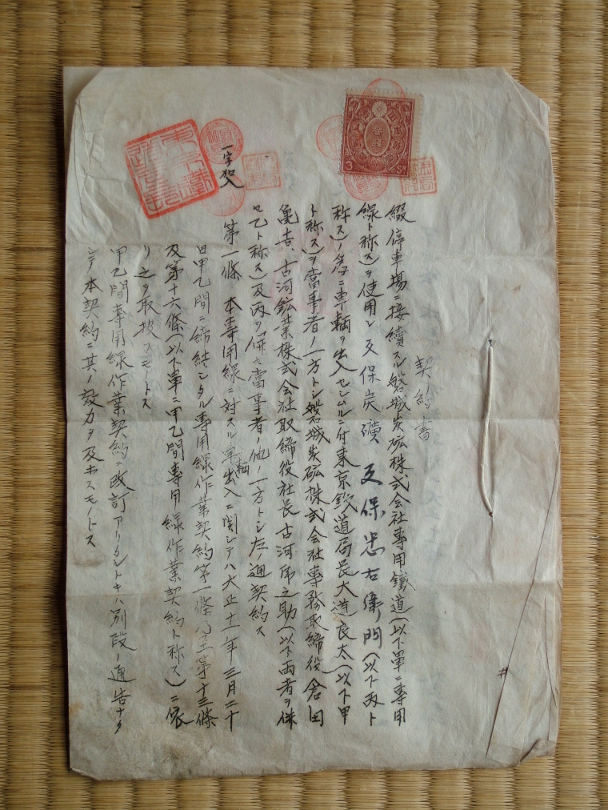 契約書
綴停車場ニ接続スル磐城炭砿株式会社専用鐵道(以下單ニ専用
線ト称ス)ヲ使用シ又保炭礦又保忠右衛門(以下丙ト
称ス)ノ為ニ車輌ヲ出入セシムルニ付東京鐵道局長大道良太(以下甲
ト称ス)ヲ當事者ノ一方トシ磐城炭砿株式会社専務取締役倉田
亀吉、古河鉱業株式会社取締役社長古河虎之助(以下両者ヲ併
セ乙ト称ス)及丙ヲ併セ當事者ノ他ノ一方トシ左ノ通契約ス
第一條 本専用線ニ対スル車輌出入ニ関シテハ大正十一年三月二十
日甲乙間ニ締結シタル専用線作業契約第一條乃至第十三條
及第十六條(以下單ニ甲乙間専用線作業契約ト称ス)ニ依
リ之ヲ取扱フモノトス
甲乙間専用線作業契約ニ改訂アリタルトキハ別段ノ通告ナク
シテ本契約ニ其ノ効力ヲ及ホスモノトス
一字加入